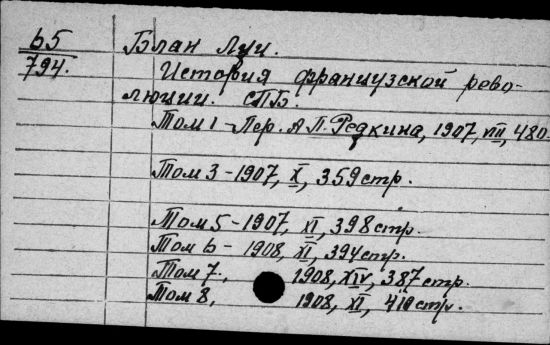 65
794.
Блан Луи.
История французской рево-
люции. СПБ.
Том 1 - Пер. А.П. Редкина, 1907, VIII, 480
Том 3 - 1907, X, 359 стр.
Том 5 - 1907, XI, 398 стр.
Том 6 - 1908, XI, 394 стр.
Том 7, 1908, XIV, 387 стр.
Том 8, 1908, XI, стр.